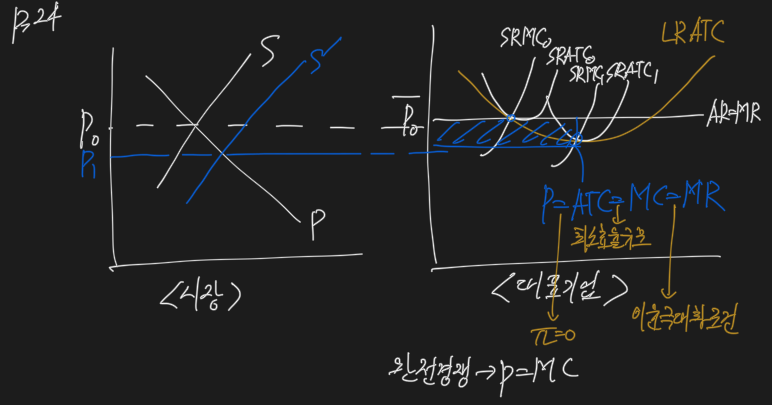 p.24
S
S'
P₀
P₁
P
<시장>
SRMC₀
SRATC₀
SRMC₁
SRATC₁
LRATC
P₀
AR=MR
P=ATC=MC=MR
최소효율규모
<대표기업>
π=0
이윤극대화조건
완전경쟁→p=MC